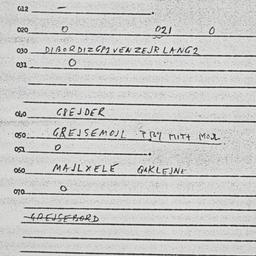 012 —
020 0 021 0
030 DIBORDIZGP1VENZEJRLANG2
031 0
040 GREJDER
050 GREJSEMOJL TRY MITT MOJL
051 0
060 MAJLXELE GAKLEJNE
070 0
GREJSEBORD